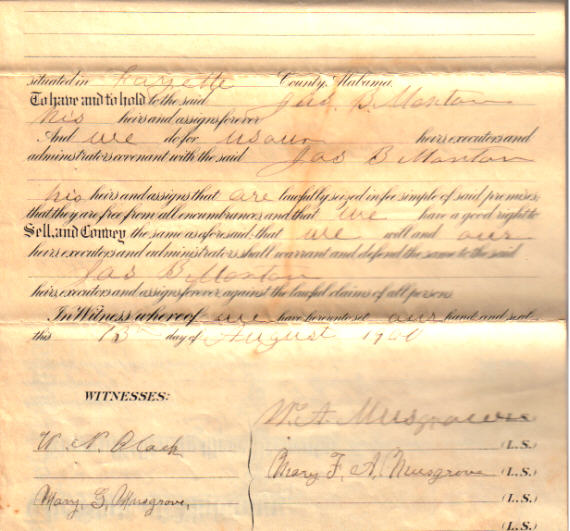 situated in Fayette County, Alabama.
To have and to hold to the said Jas. B. Manton
his heirs and assigns forever
And we do for us our heirs, executors and
administrators covenant with the said Jas B Manton
his heirs and assigns that are lawfully seized in fee simple of said premises;
that they are free from all encumbrances, and that we have a good right to
Sell, and Convey the same as aforesaid; that we will and our
heirs, executors and administrators shall warrant and defend the same to the said
Jas B Manton
heirs, executors and assigns forever, against the lawful claims of all persons
In Witness whereof we have hereunto set our hand and seal
this 13 day of August 1900
WITNESSES:
W. A. Musgrove
W. N. Black (L.S.)
Mary F. A. Musgrove (L.S.)
Mary G. Musgrove, (L.S.)
(L.S.)